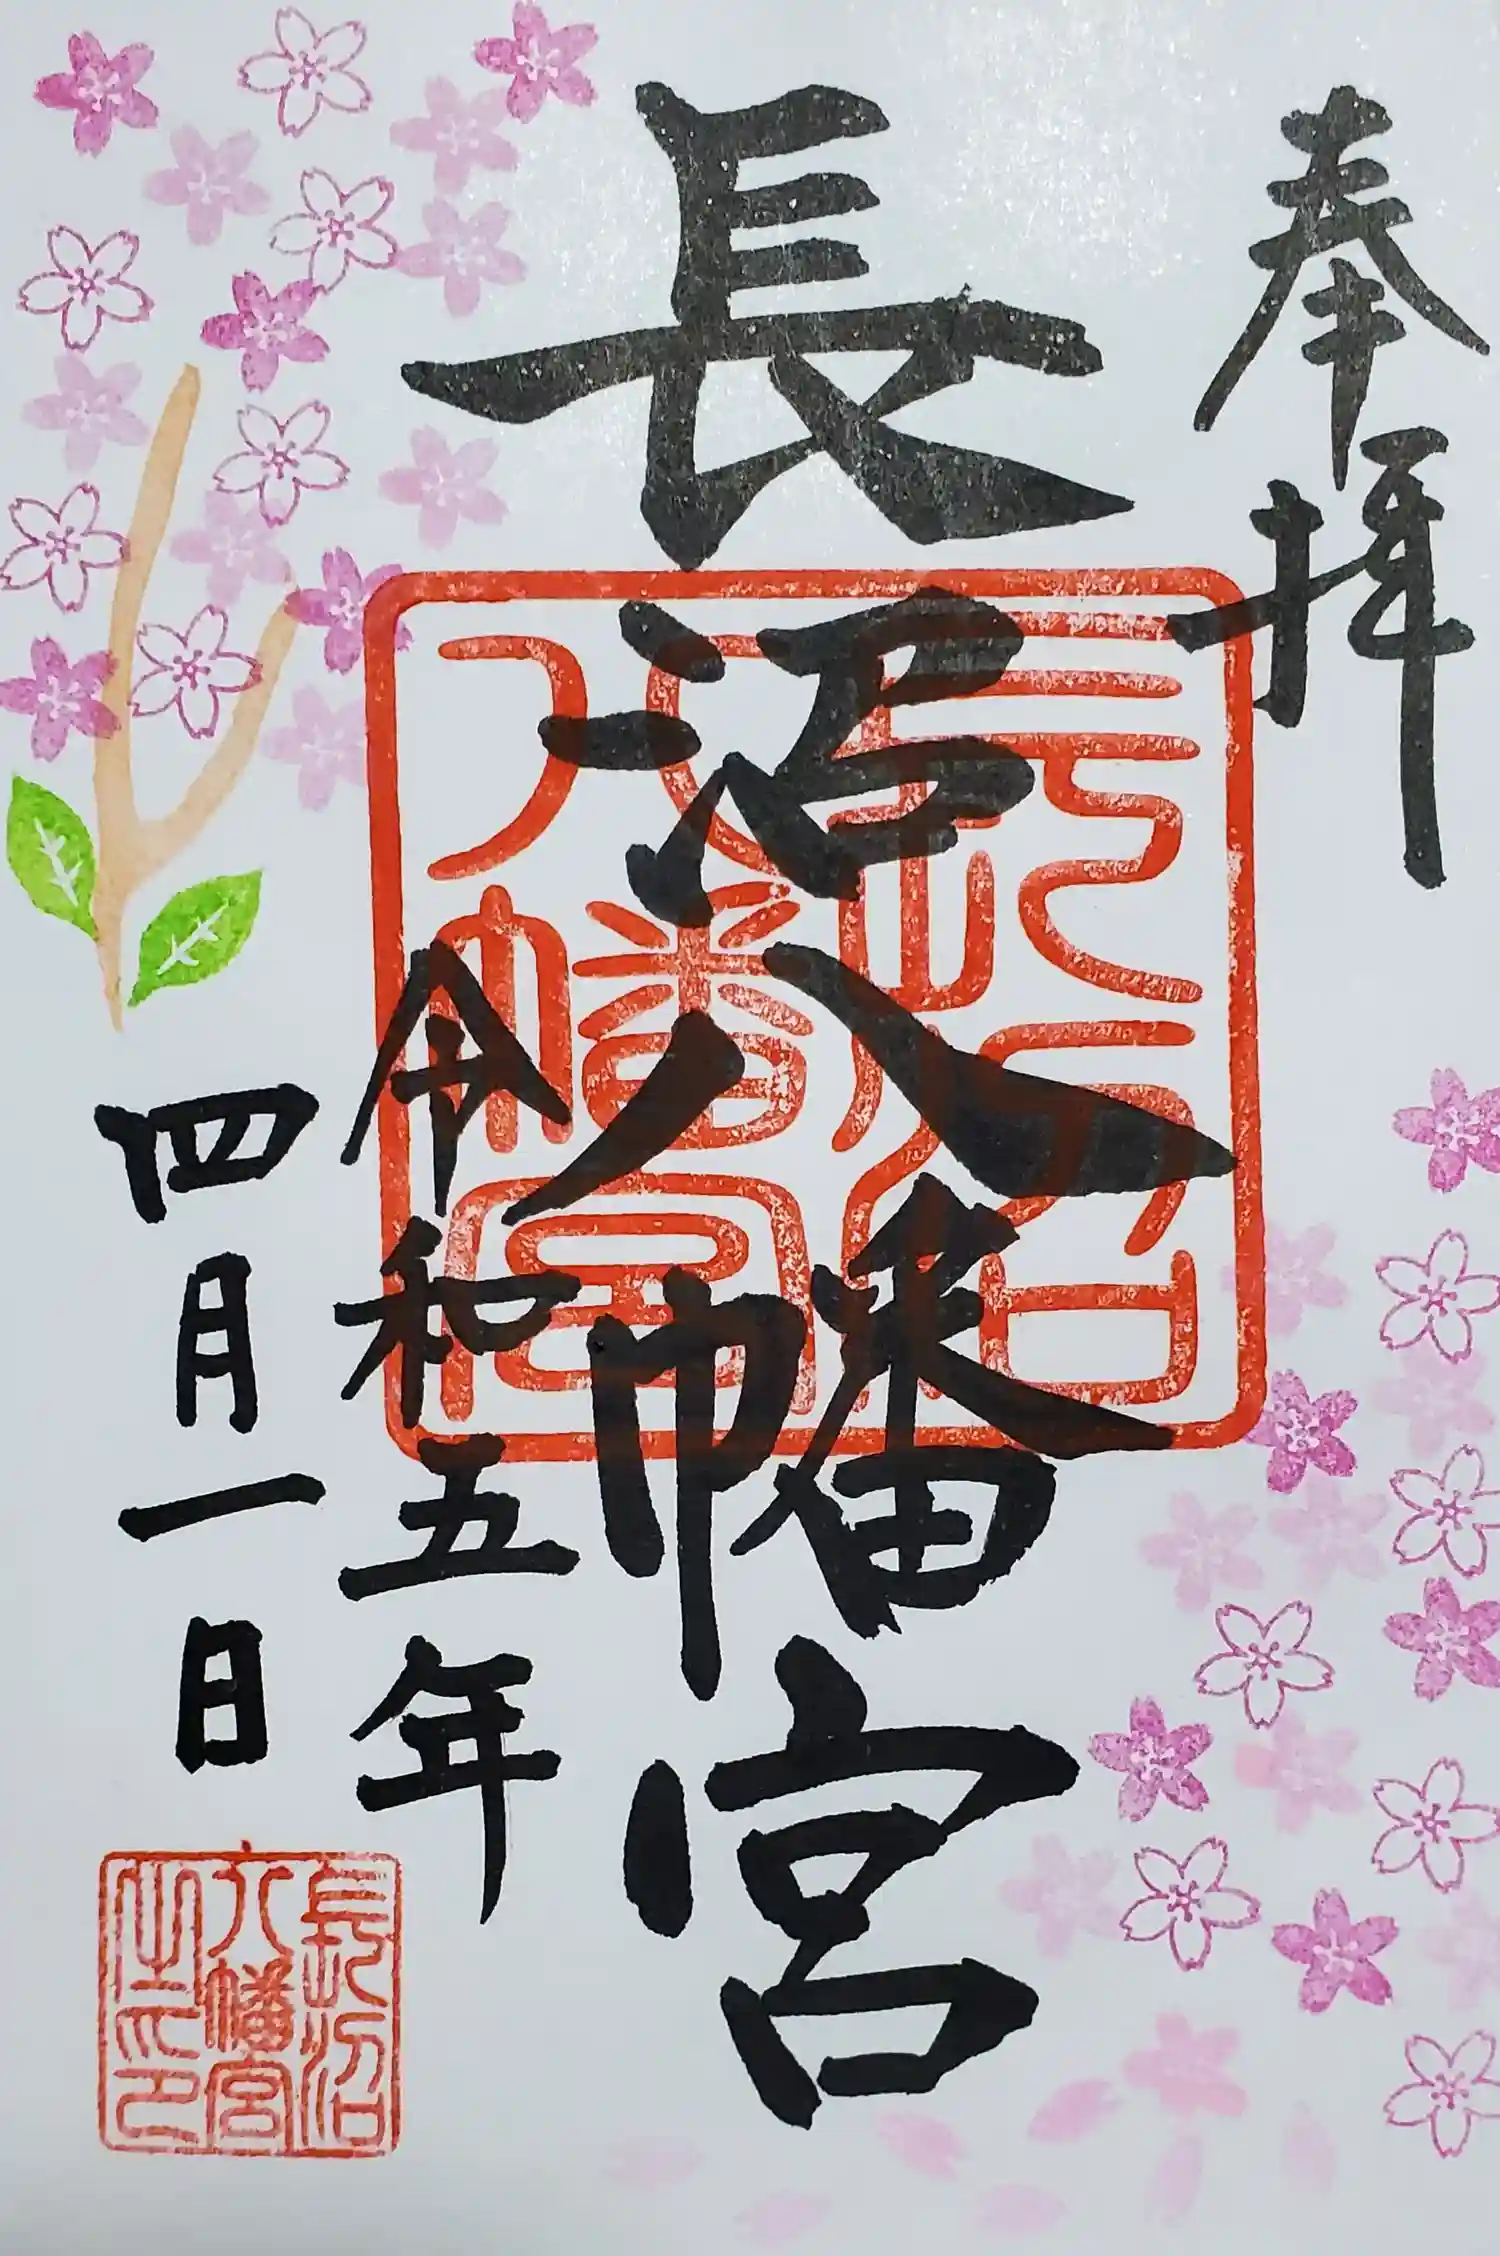 奉拝
長沼八幡宮
令和五年
四月一日
長沼
八幡宮
長沼
八幡宮
之印